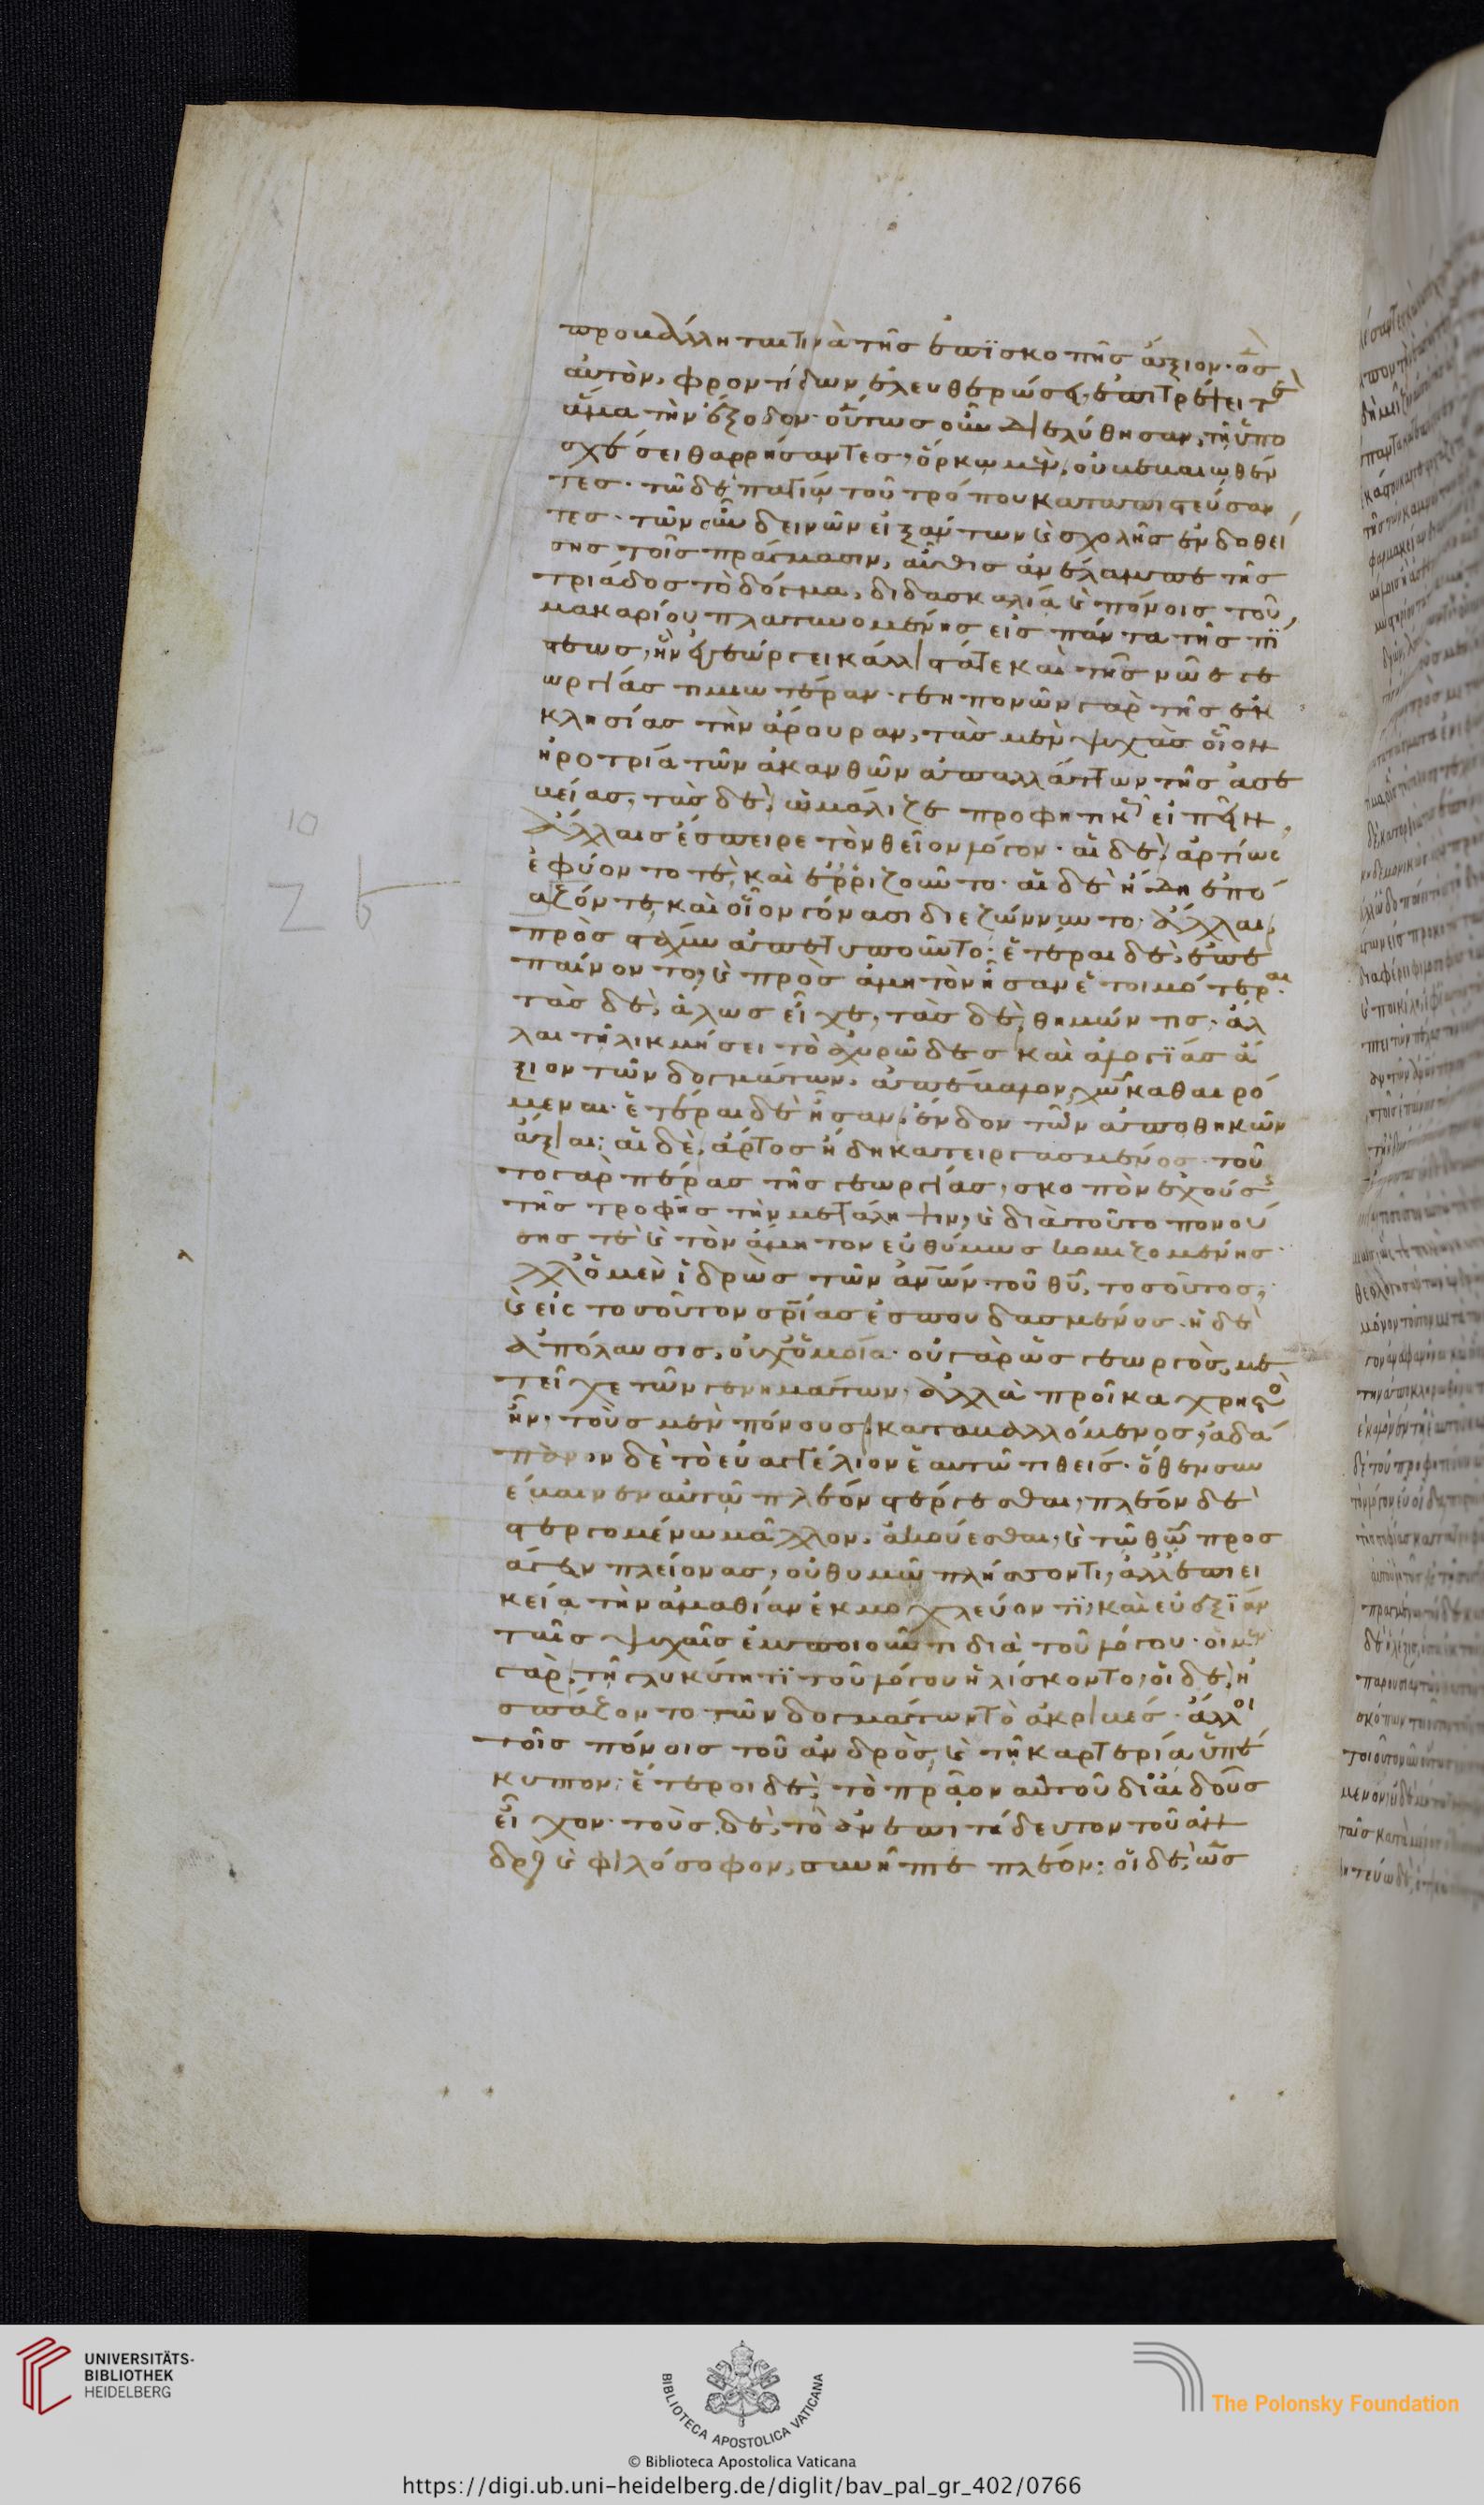 προβάλληται τινὰ τῆς ἐπϊσκοπῆς ἄξιον· ὃς
αὐτὸν, φροντίδων ἐλευθερώσας, ἐπιτρέψει τὲ
ἅμα τὴν ἔξοδον· οὕτως οὖν διελύθησαν, τῇ ὑπο
σχέσει θαρρήσαντες, ὅρκω μὲν, οὐ βεβαιωθέν
τες· τῶ δὲ πατίω τοῦ τρόπου καταπιστεύσαν
τες· τῶν οὖν δεινῶν εἰξάντων καὶ σχολῆς ἐνδοθεί
σης τοῖς πράγμασιν, αὖθις ἀνέλαμπε τῆς
τριάδος τὸ δόγμα, διδασκαλία καὶ πόνοις τοῦ
μακαρίου πλατυνομένης εἰς πάντα τῆς πί
στεως, ἣν ἐγεώργει κάλλιστά τε καὶ τῆς νῶε γε
ωργίας τιμιωτέραν· γεηπονῶν γὰρ τῆς ἐκ
κλησίας τὴν ἄρουραν, τὰς μὲν ψυχὰς οἷον
ἠροτρία τῶν ἀκανθῶν ἀπαλλάττων τῆς ἀσε
βείας, τὰς δὲ, ὡμάλιζε προφητικῶς εἰπεῖν,
ἄλλαις ἔσπειρε τὸν θεῖον λόγον· αἱ δὲ, ἀρτίως
ἐφύοντο τὲ, καὶ ἐρριζοῦντο· αἱ δὲ ἤδη ἐπό
αζόν τε καὶ οἷον γόνασι διεζώννυντο· ἄλλαι,
πρὸς στάχυν ἀπετυποῦντο· ἕτεραι δὲ, ἐπε
παίνοντο, καὶ πρὸς ἀμητὸν ἦσαν ἑτοιμότεραι·
τὰς δὲ, ἅλως εἶχε, τὰς δὲ, θημών τις· ἄλ
λαι τῇ λικμήσει τὸ ἀχυρῶδες καὶ ἀλογϊάς ἄ
ξιον τῶν δογμάτων, ἀπέβαλον, χωνκαθαιρό
μεναι· ἕτεραι δὲ ἦσαν, ἔνδον τῶν ἀποθηκῶν
ἄξιαι· αἱ δὲ, ἄρτος ἤδη κατειργασμένος· τοῦ
το γὰρ πέρας τῆς γεωργίας, σκοπὸν ἐχούσης
τῆς τροφῆς τὴν μετάληψιν, καὶ διὰ τοῦτο πονού
σης τὲ καὶ τὸν ἄμητον εὐθύμως κομιζομένης·
ἀλλ' ὁ μὲν ἱδρὼς τῶν ἀνων τοῦ θυ, τοσοῦτος,
καὶ εἰς τοσοῦτον σρίας ἐσπουδασμένος· ἡ δὲ
ἀπόλαυσις, οὐχ ὁμοία· οὐ γὰρ ὡς γεωργὸς, με
τεῖχε τῶν γεννημάτων, ἀλλὰ προῖκα χρηστὸς
ἦν· τοὺς μὲν πόνους, καταβαλλόμενος, ἀδά
πανον δὲ τὸ εὐαγγέλιον ἑαυτῶ τιθείς· ὅθεν συν
έβαινεν αὐτῶ πλέον στέργεσθαι, πλέον δὲ
στεργομένω μᾶλλον, ἀκούεσθαι, καὶ τῶ θω προσ
άγειν πλείονας, οὐ θυμῶ πλήττοντι, ἀλλ' ἐπιει
κεία τὴν ἀμαθίαν ἐκμοχλεύοντϊ, καὶ εὐεξϊάν
ταῖς ψυχαῖς ἐμποιοῦντι διὰ τοῦ λόγου· οἱ μὲν
γὰρ, τῆ γλυκύτητϊ τοῦ λόγου ἡλίσκοντο, οἱ δὲ, ἠ
σπάζοντο τῶν δογμάτων τὸ ἀκριβές· ἄλλοι
τοῖς πόνοις τοῦ ἀνδρὸς, καὶ τῆ καρτερία ὑπέ
κυπτον· ἕτεροι δὲ, τὸ πρᾶον αὐτοῦ δι' αἰδοῦς
εἶχον· τοὺς δὲ, τὸ ἀνεπιτήδευτον τοῦ ἀν
δρὸς καὶ φιλόσοφον, συνῆπτε πλέον· οἱ δὲ, ὡς
10
Z
UNIVERSITÄTS-
BIBLIOTHEK
HEIDELBERG
BIBLIOTECA APOSTOLICA VATICANA
The Polonsky Foundation
© Biblioteca Apostolica Vaticana
https://digi.ub.uni-heidelberg.de/diglit/bav_pal_gr_402/0766